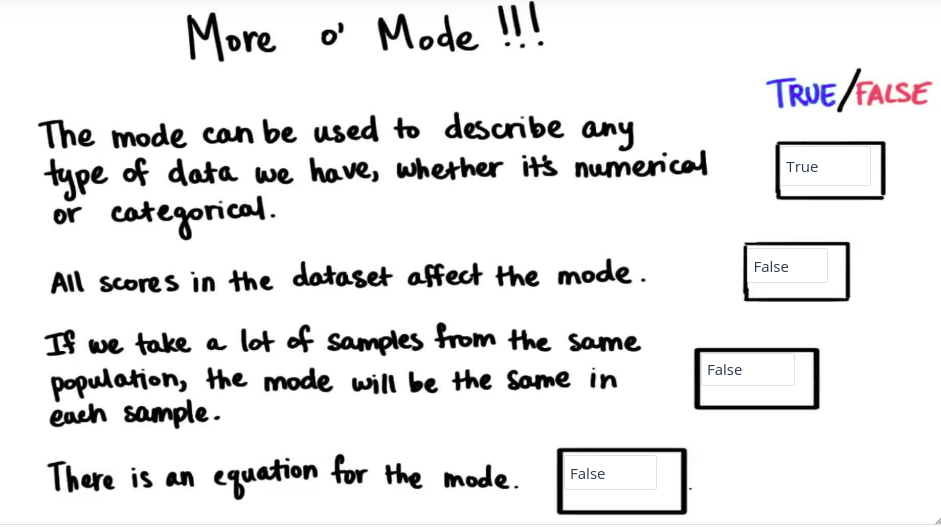 More o' Mode !!!
TRUE/FALSE
The mode can be used to describe any
type of data we have, whether it's numerical
or categorical.
True
All scores in the dataset affect the mode.
False
If we take a lot of samples from the same
population, the mode will be the same in
each sample.
False
There is an equation for the mode.
False